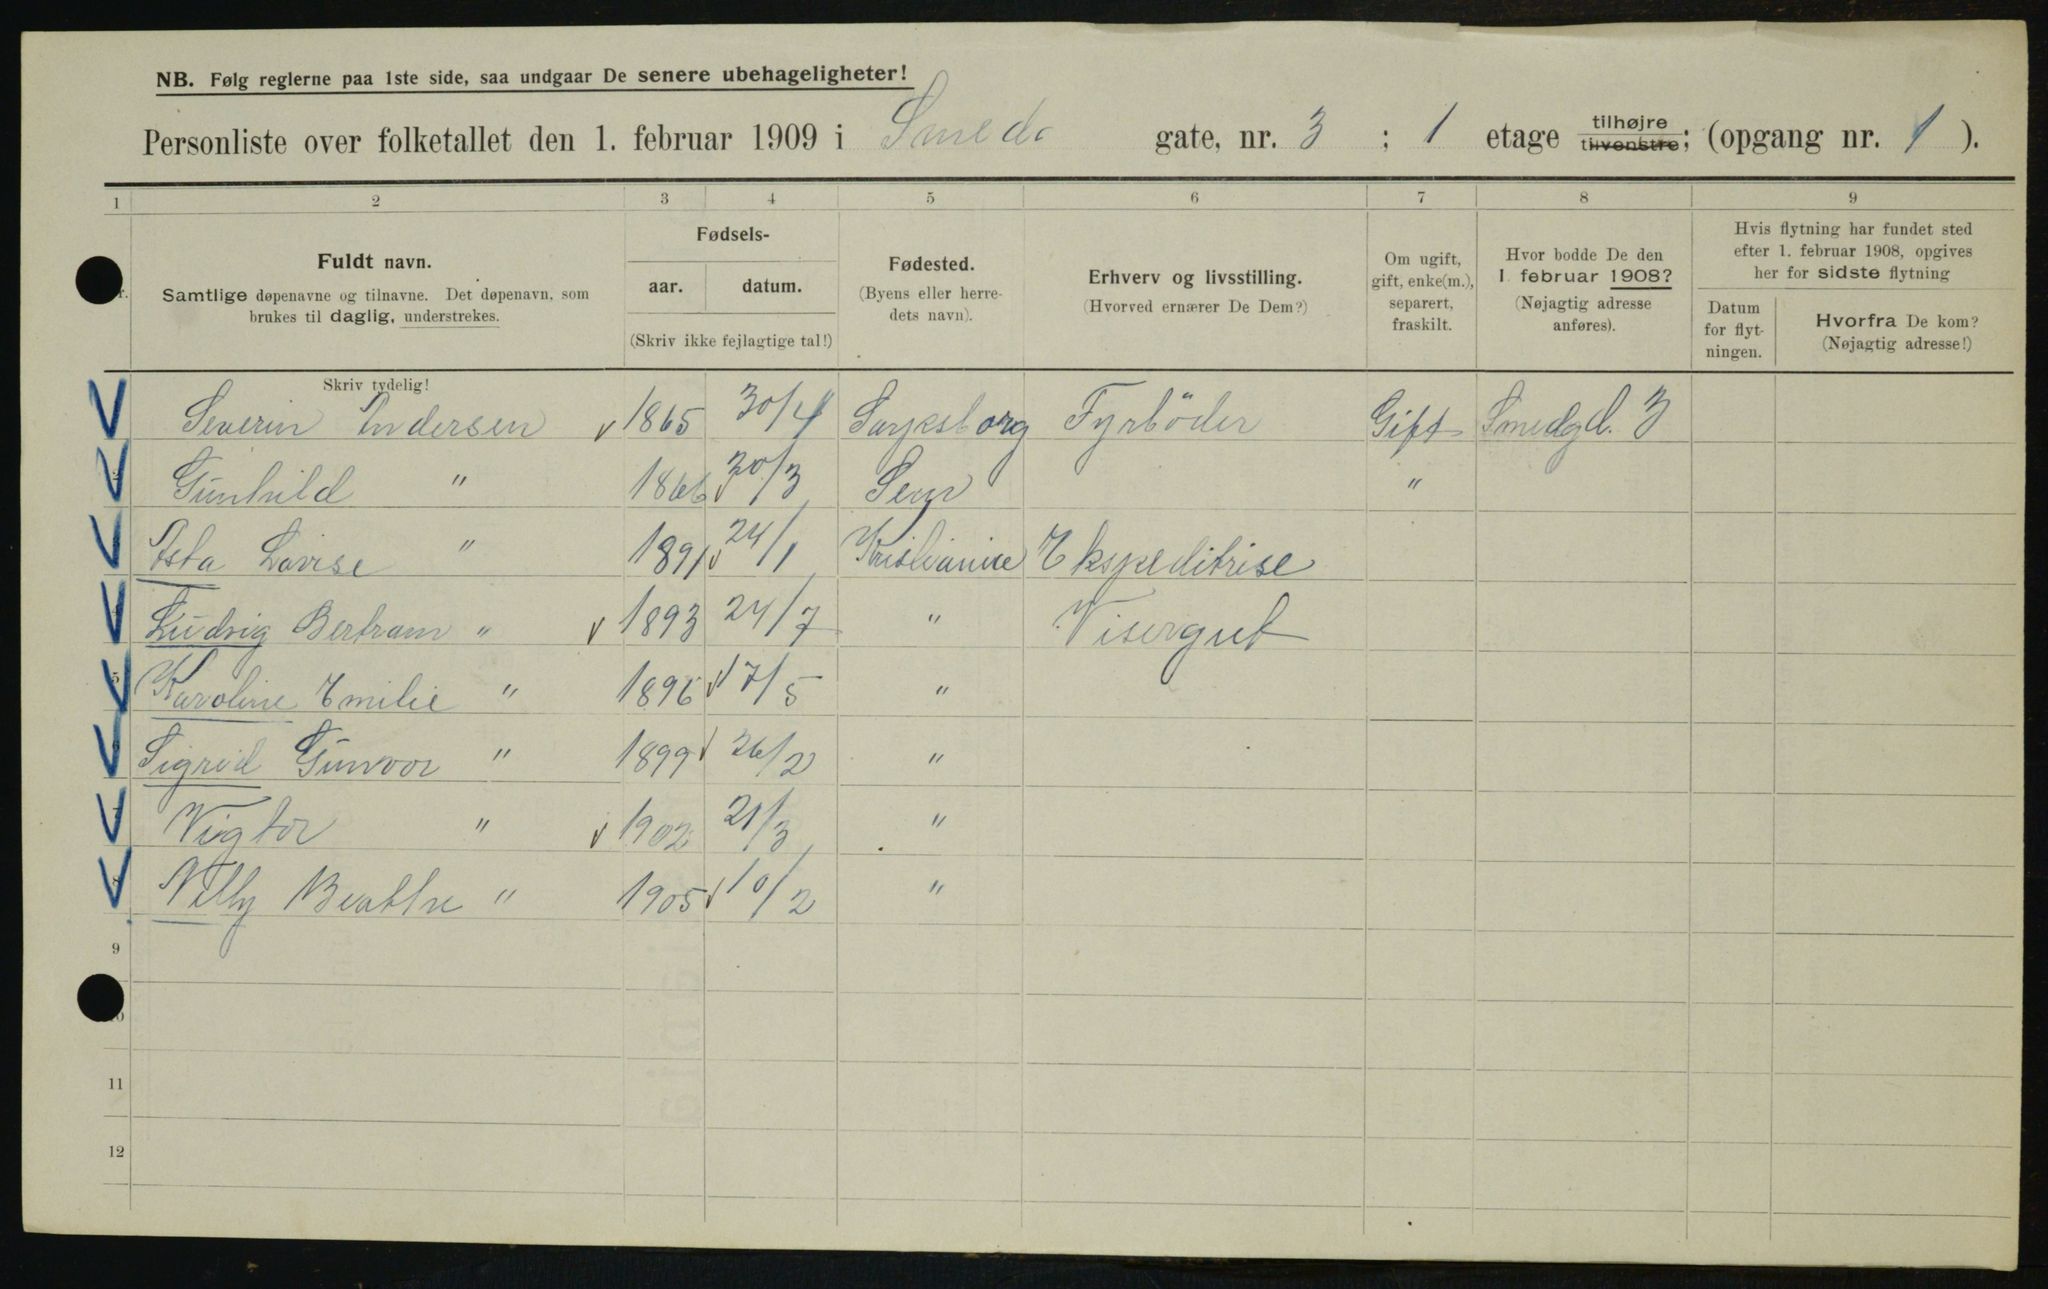 NB. Følg reglerne paa 1ste side, saa undgaar De senere ubehageligheter!
Personliste over folketallet den 1. februar 1909 i Smeda gate, nr. 3 ; 1 etage tilhøjre tilvenstre; (opgang nr. 1 ).
1 2 3 4 5 6 7 8 9
Fuldt navn.
Samtlige døpenavne og tilnavne. Det døpenavn, som
brukes til daglig, understrekes.
Skriv tydelig!
Fødsels-
aar. datum.
(Skriv ikke fejlagtige tal!)
Fødested.
(Byens eller herre-
dets navn).
Erhverv og livsstilling.
(Hvorved ernærer De Dem?)
Om ugift,
gift, enke(m.),
separert,
fraskilt.
Hvor bodde De den
1. februar 1908?
(Nøjagtig adresse
anføres).
Hvis flytning har fundet sted
efter 1. februar 1908, opgives
her for sidste flytning
Datum
for flyt-
ningen.
Hvorfra De kom?
(Nøjagtig adresse!)
Severin Andersen 1865 30/4 Sarpsborg Fyrböder Gift Smedgd. 3
2 Gunhild " 1866 30/3 Sem "
Asta Lovise " 1891 24/1 Kristiania Ekspeditrise
4 Ludvig Bertram " 1893 24/7 " Visergut
5 Karoline Emilie " 1896 17/5 "
6 Sigrid Gunvor " 1899 26/2 "
7 Vigtor " 1902 21/3 "
8 Nelly Beathe " 1905 10/2 "
9
10
11
12